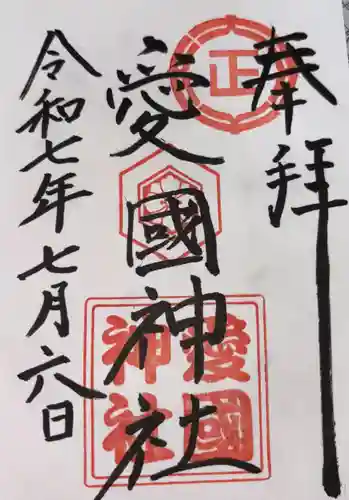 奉拝
愛國神社
令和七年七月六日
正
愛國
神社